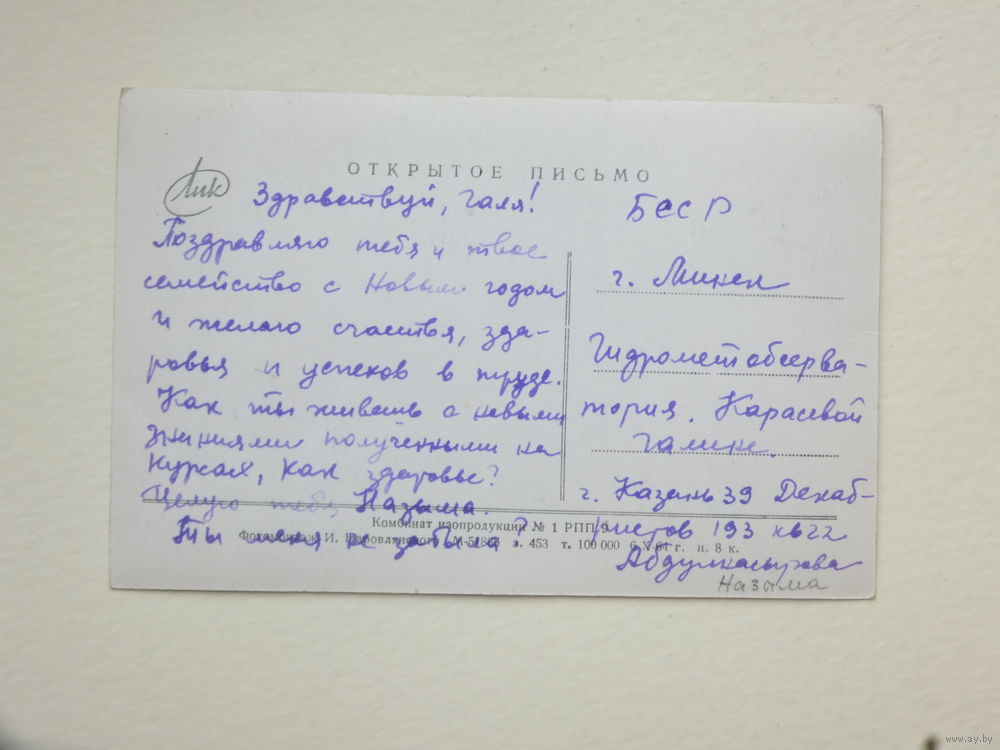 ОТКРЫТОЕ ПИСЬМО
Лик
Здравствуй, Галя!
Поздравляю тебя и твое
семейство с Новым годом
и желаю счастья, здо-
ровья и успехов в труде.
Как ты живешь с новыми
знаниями полученными на
курсах, как здоровье?
Целую тебя, Назыма.
Ты меня не забыла?
БССР
г. Минск
Гидрометобсерва-
тория. Карасевой
Галине.
г. Казань 39 Декаб-
ристов 193 кв 22
Назыма
Комбинат изопродукции № 1 РПП
Фотомонтаж И. з. 453 т. 100 000 6 X-61 г. ц. 8 к.
www.ay.by